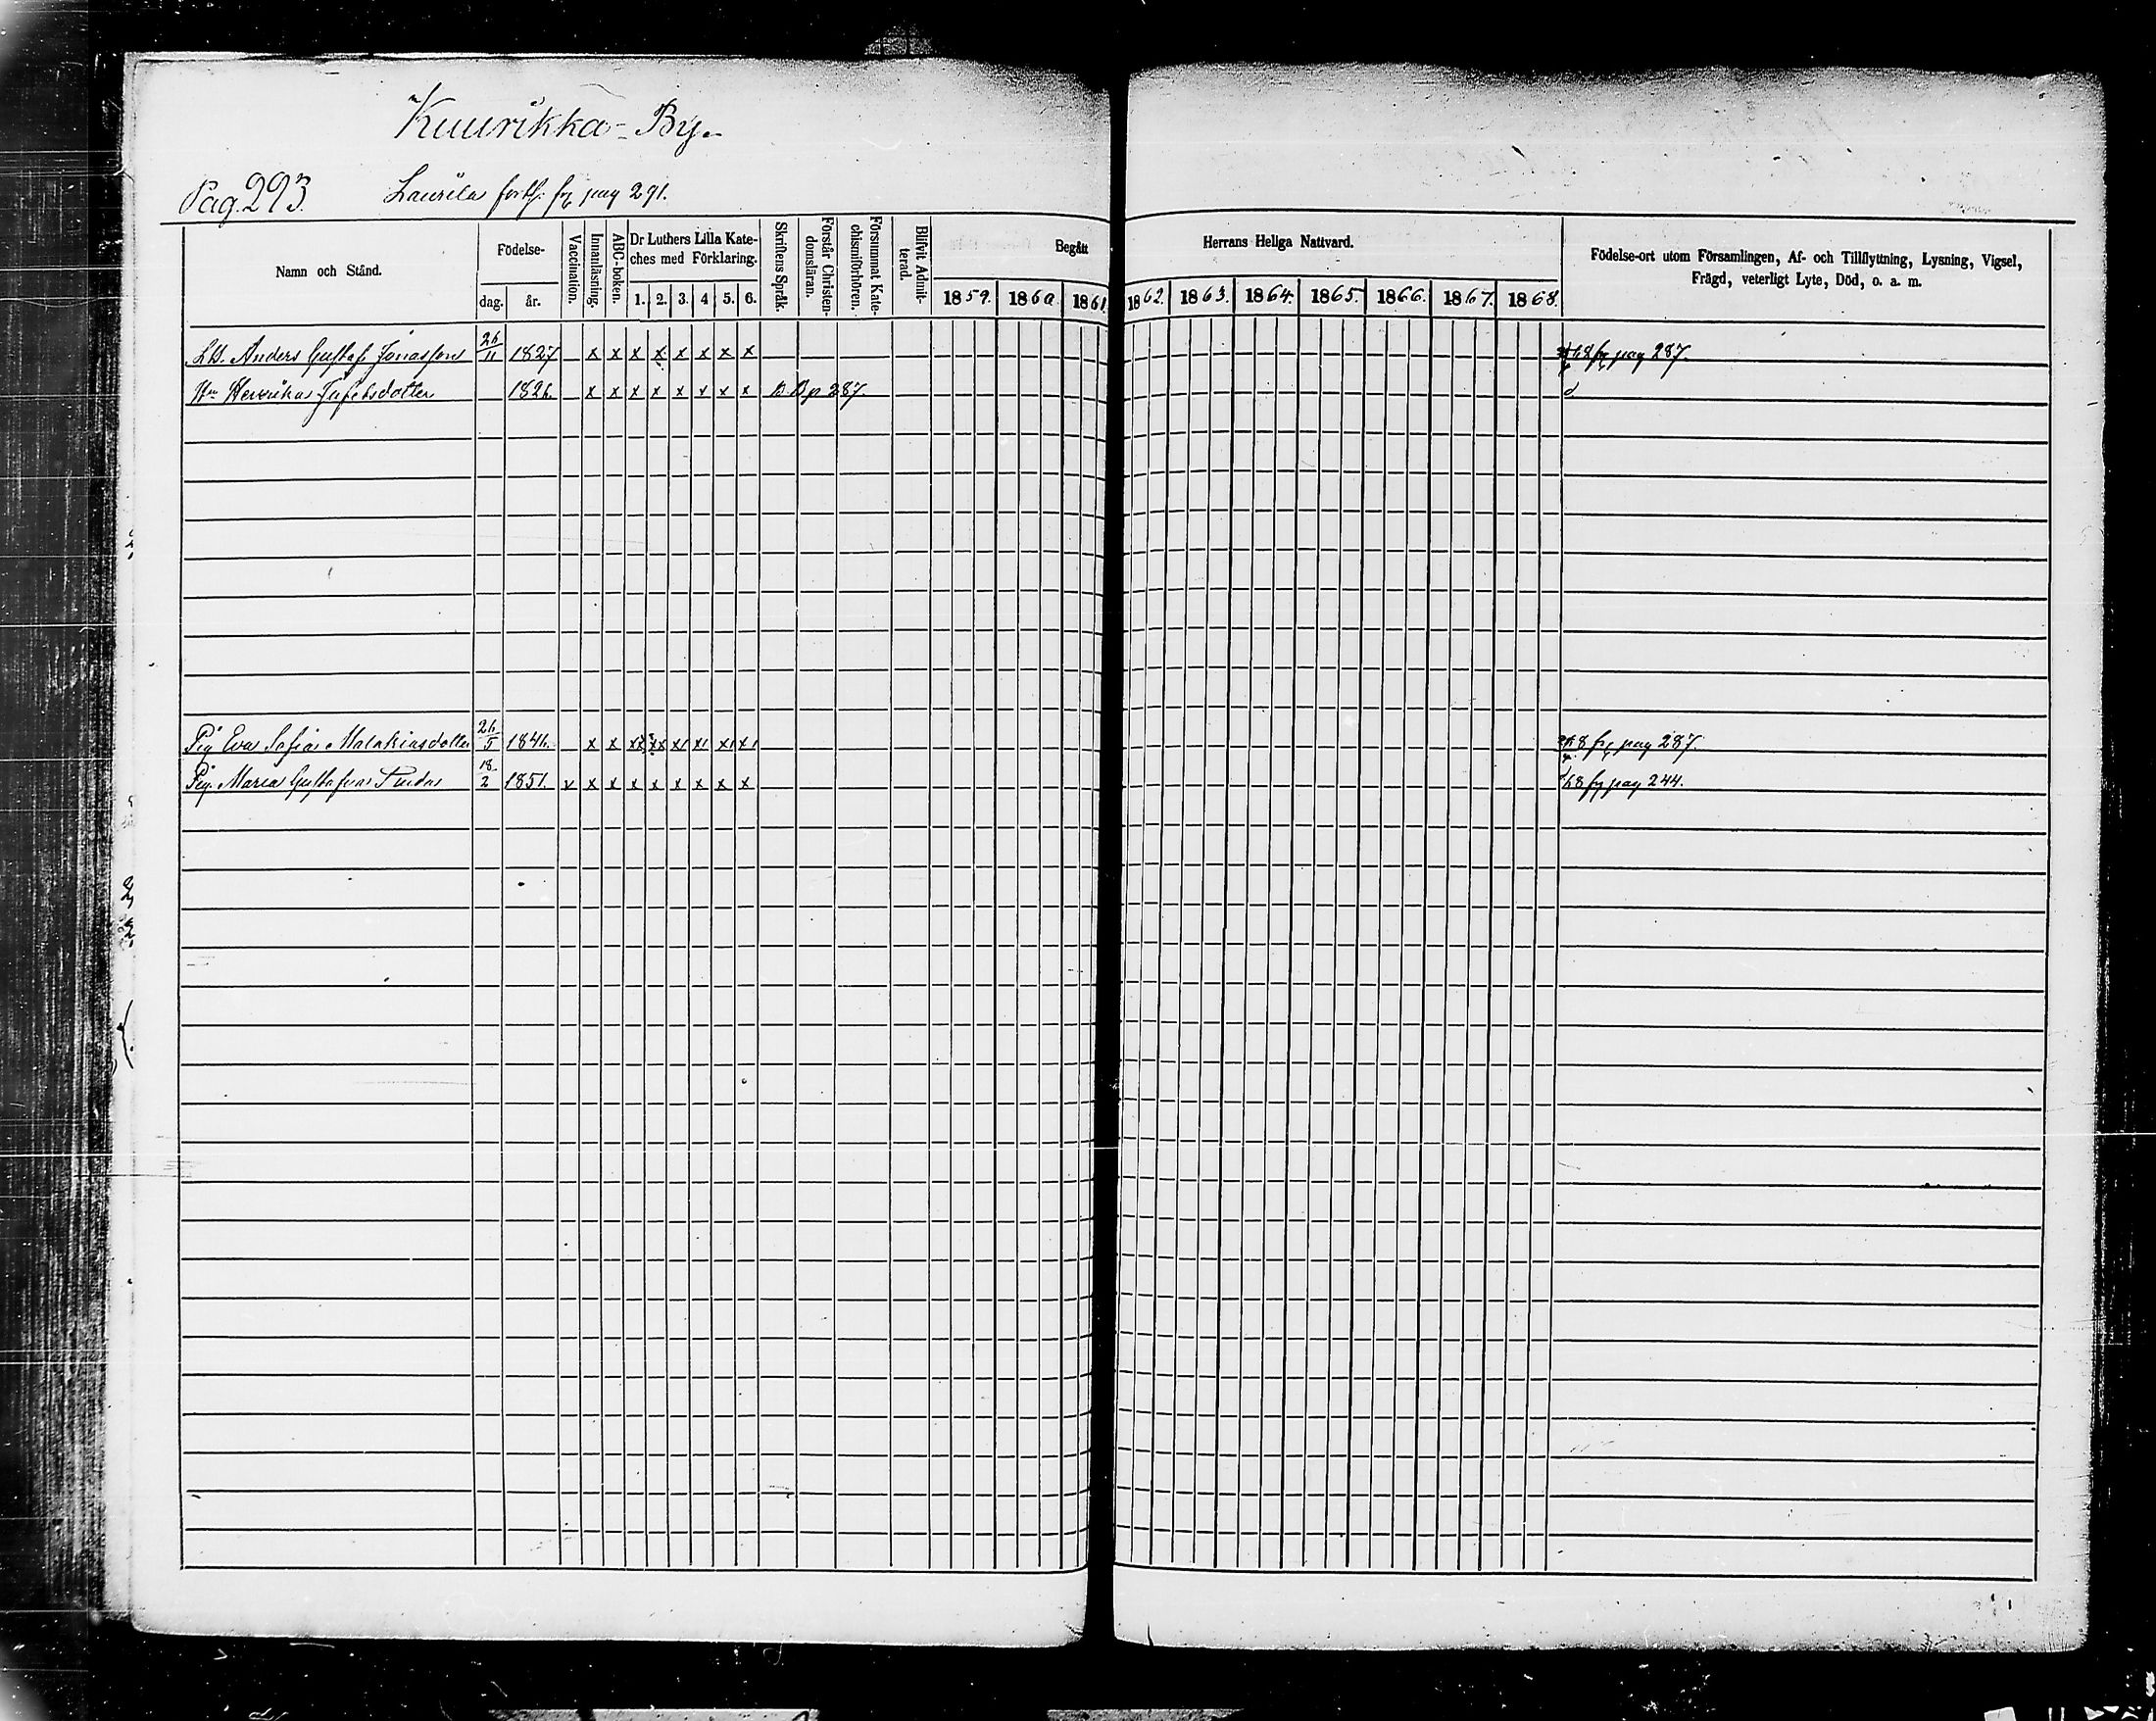 Kuurikka - By.
Pag. 293. Laurila forts. fr. pag 291.
Namn och Stånd.
Födelse-
dag. år.
Vaccination.
Innanläsning.
ABC-boken.
Dr Luthers Lilla Kate-
ches med Förklaring.
1. 2. 3. 4 5. 6.
Skriftens Språk.
Förstår Christen-
domsläran.
Försummat Kate-
chismiförhören.
Blifvit Admit-
terad.
Begått Herrans Heliga Nattvard.
1859. 1860 1861. 1862. 1863. 1864. 1865. 1866. 1867. 1868.
Födelse-ort utom Församlingen, Af- och Tillflyttning, Lysning, Vigsel,
Frägd, veterligt Lyte, Död, o. a. m.
Anders Gustaf Jonasson 26/11 1827 x x x x x x x x 68 fr pag 287.
Hu Henrika 1826. x x x x x x x x B. B p 287. d
Pig Eva Sofia Malakiasdotter 26/5 1846. x x xx xx x1 x1 x1 x1 68 fr pag 287.
Pig. Maria Gustafva 18/2 1851. v x x x x x x x x 68 fr pag 244.